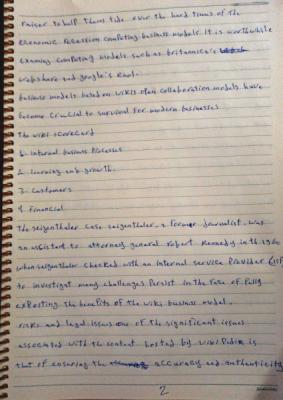 raiser to help them tide over the hard times of the
economic recession competing business models it is worthwhile
examing competing models such as britannica's
webshare and google's knol.
business models based on wikis mass collaboration models have
become crucial to survival for modern businesses
the wiki scorecard
1. internal business processes
2. learning and growth.
3. customers
4. Financial
the seigenthaler case seigenthaler, a former journalist was
an assistant to attorney general robert kennedy in th 1960
when seigenthaler checked with an internal service provider (ISP
to investigate many challenges persist in the face of fully
exploiting the benefits of the wiki business model.
risks and legal issues one of the significant issues
associated with the content hosted by wikipedia is
that of ensuring the accuracy and authenticity
2